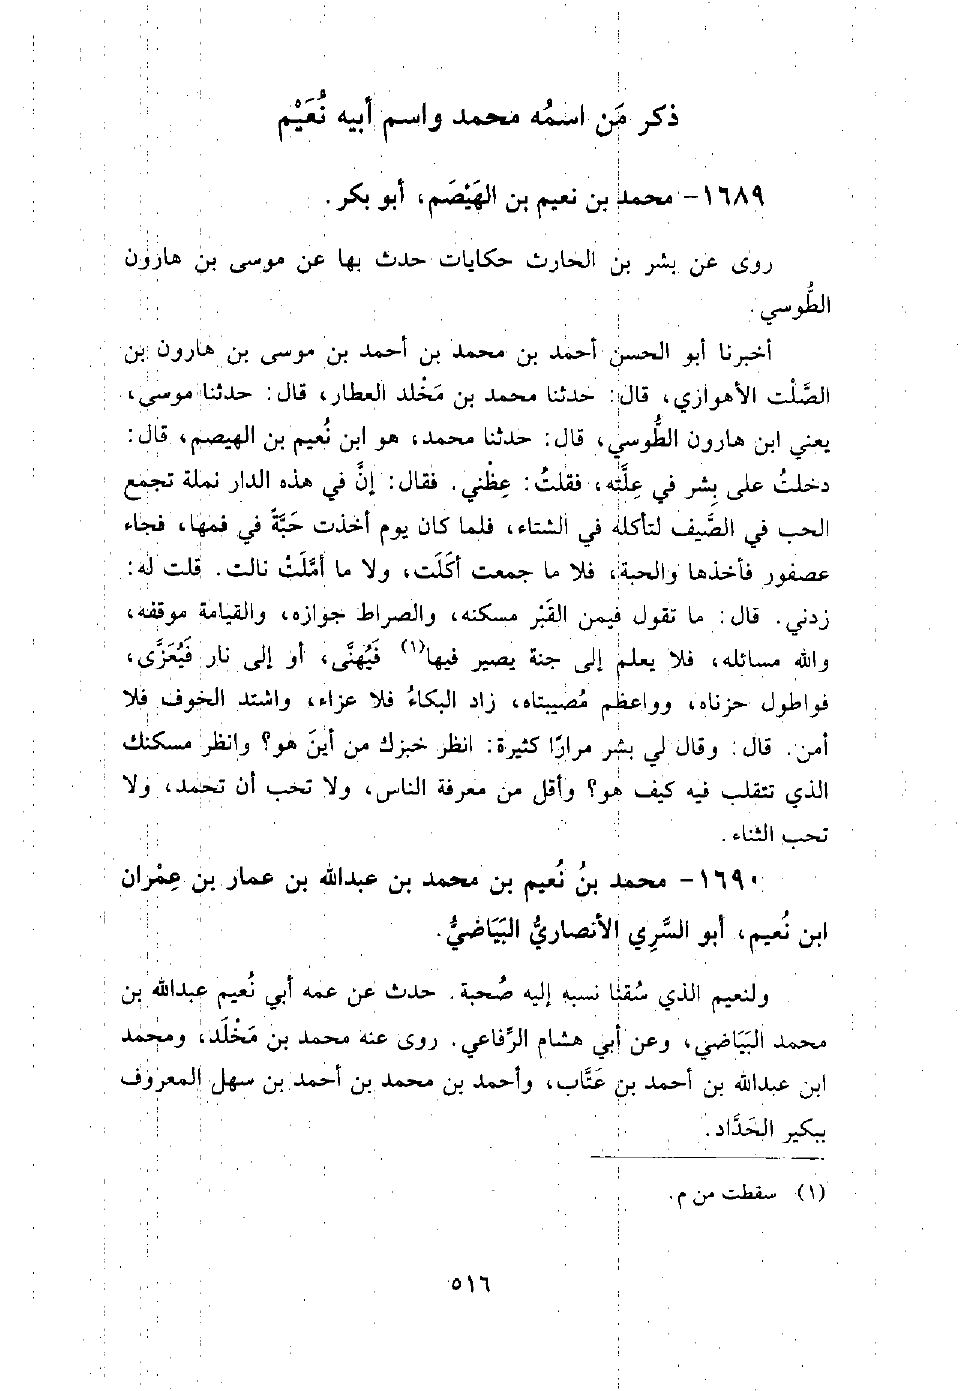 ذكر مَن اسمُه محمد واسم أبيه نُعَيْم
١٦٨٩- محمد بن نعيم بن الهَيْصَم، أبو بكر.
روى عن بشر بن الحارث حكايات حدث بها عن موسى بن هارون
الطُّوسي.
أخبرنا أبو الحسن أحمد بن محمد بن أحمد بن موسى بن هارون بن
الصَّلْت الأهوازي، قال: حدثنا محمد بن مَخْلد العطار، قال: حدثنا موسى،
يعني ابن هارون الطُّوسي، قال: حدثنا محمد، هو ابن نُعيم بن الهيصم، قال:
دخلتُ على بِشر في عِلَّته، فقلتُ: عِظْني. فقال: إنَّ في هذه الدار نملة تجمع
الحب في الصَّيف لتأكله في الشتاء، فلما كان يوم أخذت حَبَّةً في فمها، فجاء
عصفور فأخذها والحبة، فلا ما جمعت أكَلَت، ولا ما أمَّلَتْ نالت. قلت له:
زدني. قال: ما تقول فيمن القَبْر مسكنه، والصراط جوازه، والقيامة موقفه،
والله مسائله، فلا يعلم إلى جنة يصير فيها(١) فَيُهنَّى، أو إلى نار فَيُعَزَّى،
فواطول حزناه، وواعظم مُصيبتاه، زاد البكاءُ فلا عزاء، واشتد الخوف فلا
أمن. قال: وقال لي بشر مرارًا كثيرة: انظر خبزك من أينَ هو؟ وانظر مسكنك
الذي تتقلب فيه كيف هو؟ وأقل من معرفة الناس، ولا تحب أن تحمد، ولا
تحب الثناء.
١٦٩٠- محمد بنُ نُعيم بن محمد بن عبدالله بن عمار بن عِمْران
ابن نُعيم، أبو السَّري الأنصاريُّ البَيَاضيُّ.
ولنعيم الذي سُقنا نسبه إليه صُحبة. حدث عن عمه أبي نُعيم عبدالله بن
محمد البَيَاضي، وعن أبي هشام الرِّفاعي. روى عنه محمد بن مَخْلَد، ومحمد
ابن عبدالله بن أحمد بن عَتَّاب، وأحمد بن محمد بن أحمد بن سهل المعروف
ببكير الحَدَّاد.
(١) سقطت من م.
٥١٦